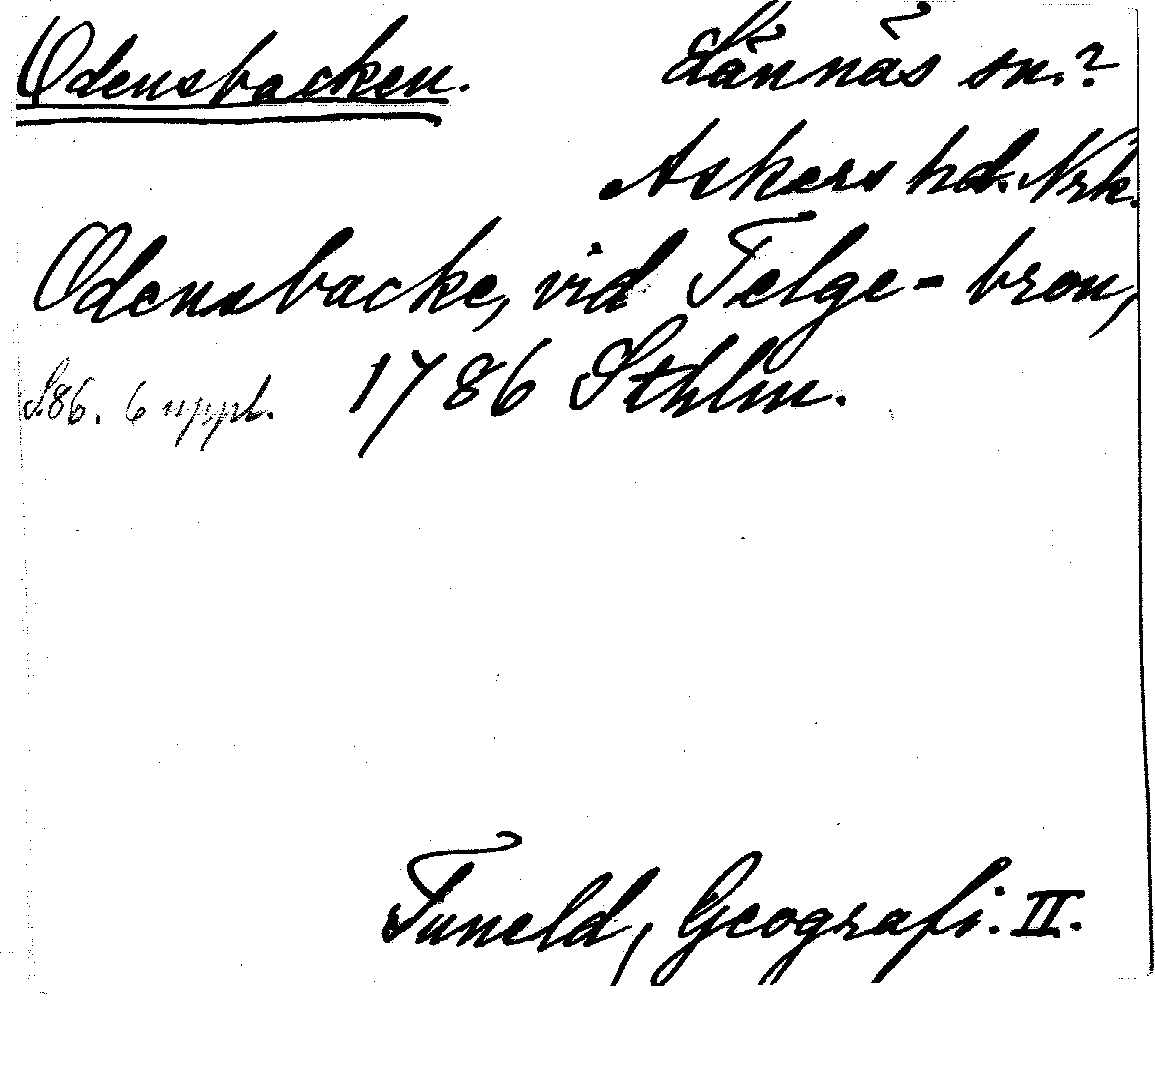 Odensbacken. Lännäs sn.?
Askers hd. Nrk.
Odensbacke, vid Telge-bron,
S. 86. 6 uppl. 1786 Sthlm.
Tuneld, Geografi. II.